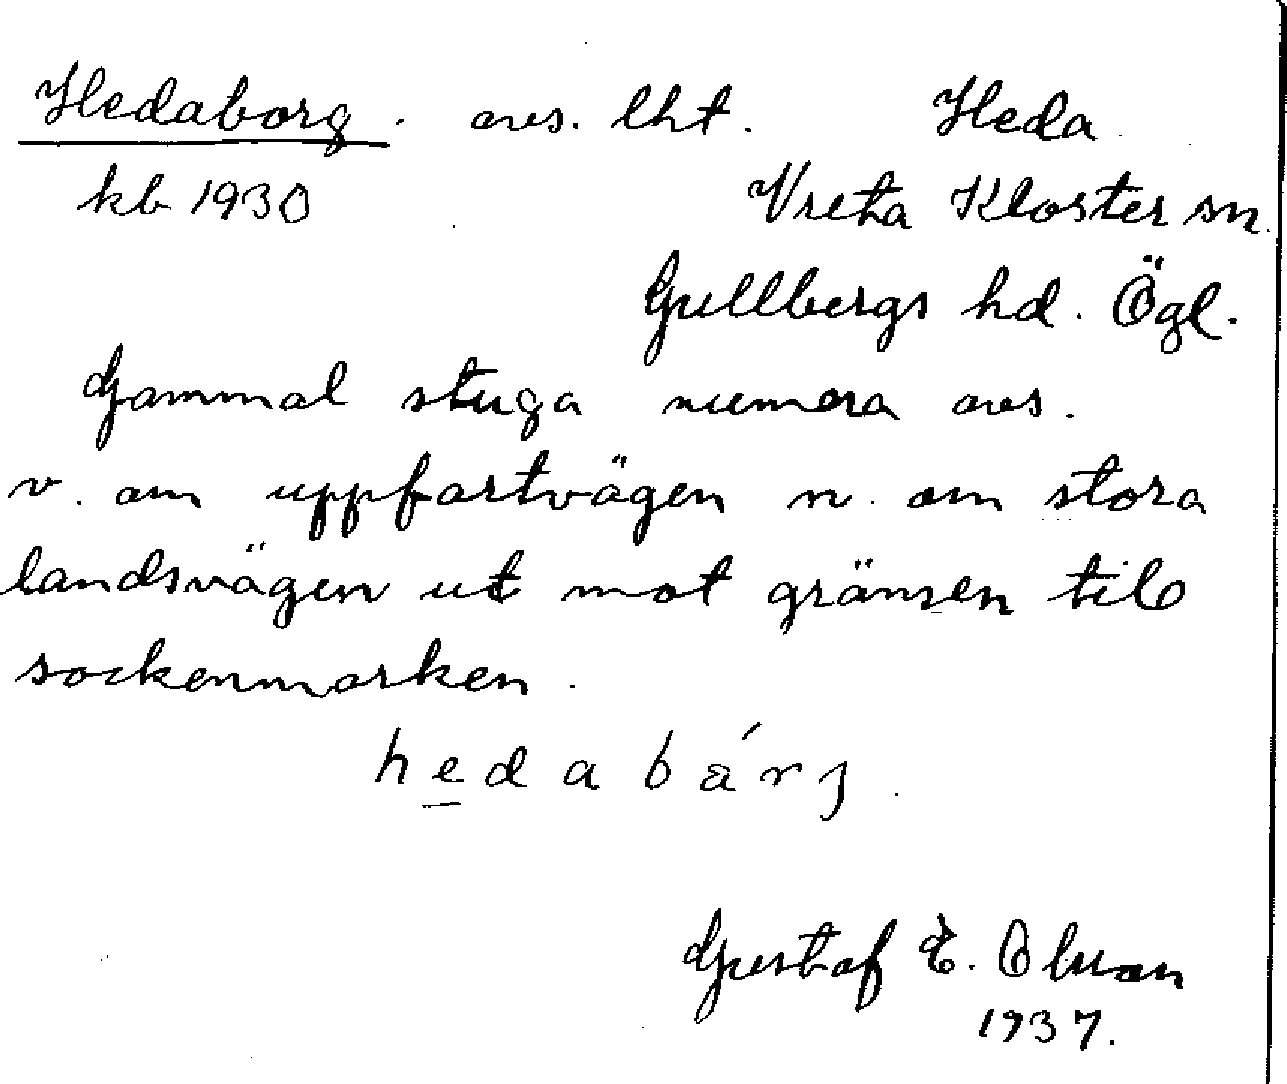 Hedaborg. avs. lht. Heda
kb 1930 Vreta Kloster sn.
Gullbergs hd. Ögl.
Gammal stuga numera avs.
v. om uppfartvägen n. om stora
landsvägen ut mot gränsen till
sockenmarken.
hedabárj.
Gustaf E. Olsson
1937.